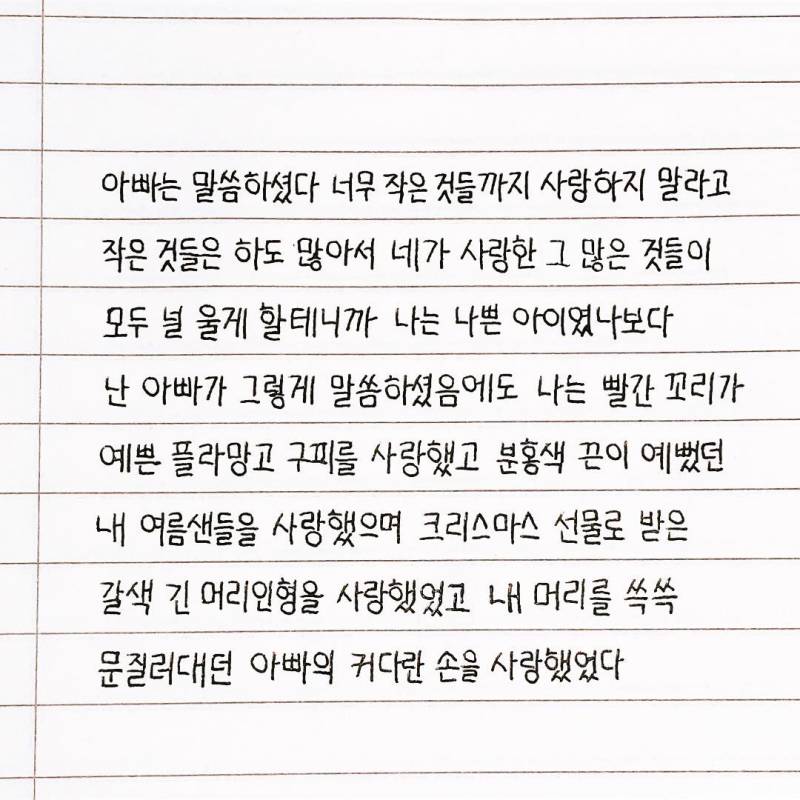 아빠는 말씀하셨다 너무 작은 것들까지 사랑하지 말라고
작은 것들은 하도 많아서 네가 사랑한 그 많은 것들이
모두 널 울게 할테니까 나는 나쁜 아이였나보다
난 아빠가 그렇게 말씀하셨음에도 나는 빨간 꼬리가
예쁜 플라망고 구피를 사랑했고 분홍색 끈이 예뻤던
내 여름샌들을 사랑했으며 크리스마스 선물로 받은
갈색 긴 머리인형을 사랑했었고 내 머리를 쓱쓱
문질러대던 아빠의 커다란 손을 사랑했었다